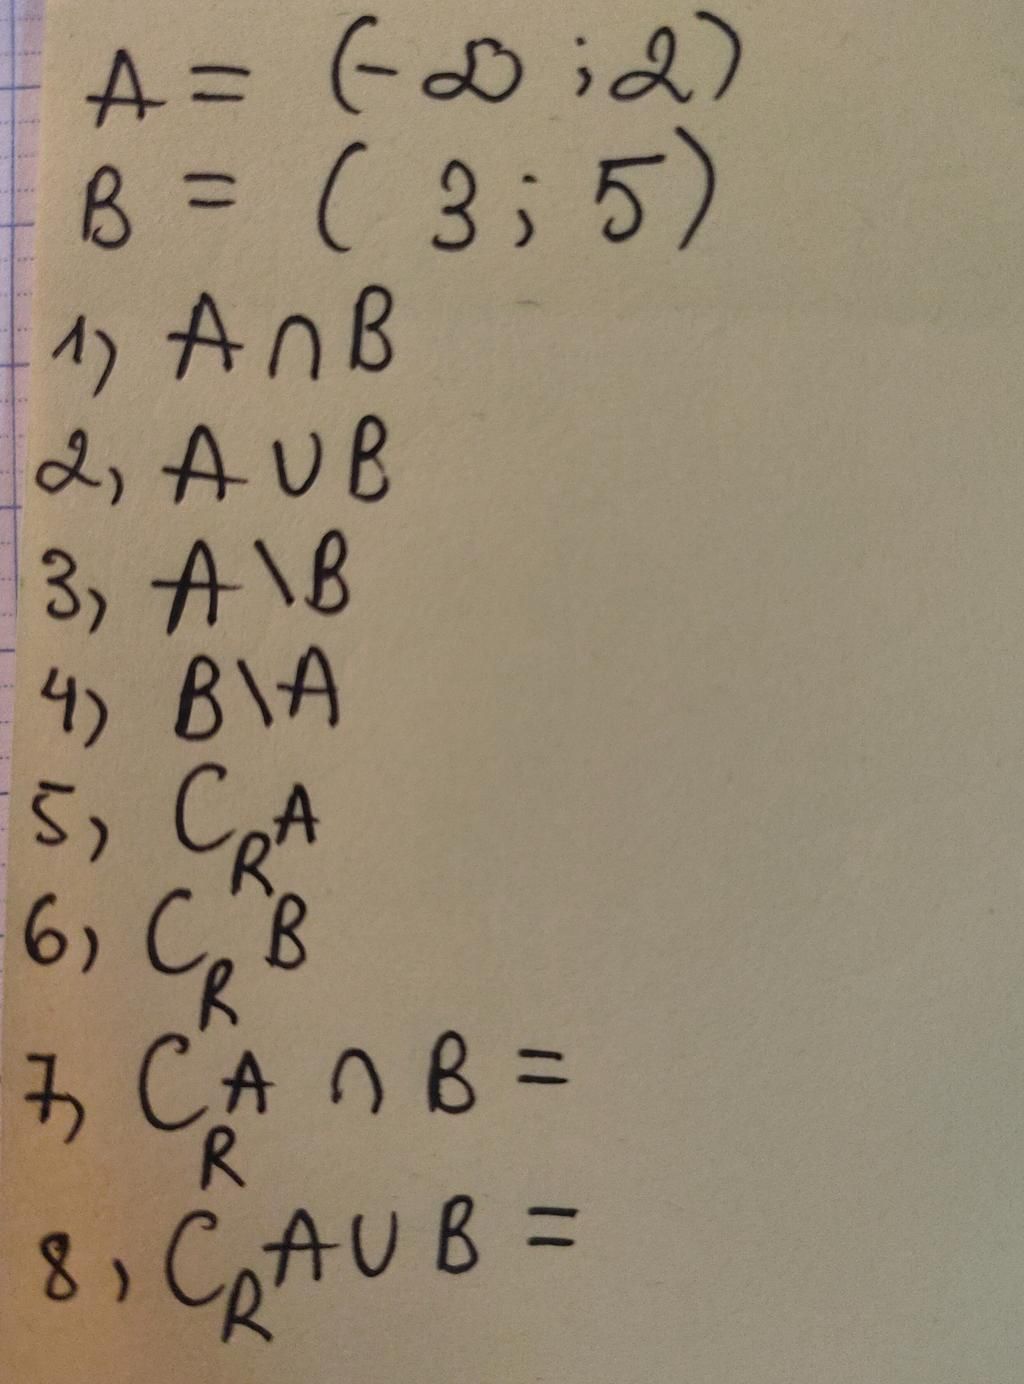 A = (-∞ ; 2)
B = ( 3 ; 5)
1) A ∩ B
2, A ∪ B
3, A \ B
4) B \ A
5, C_R A
6, C_R B
7, C_R A ∩ B =
8, C_R A ∪ B =